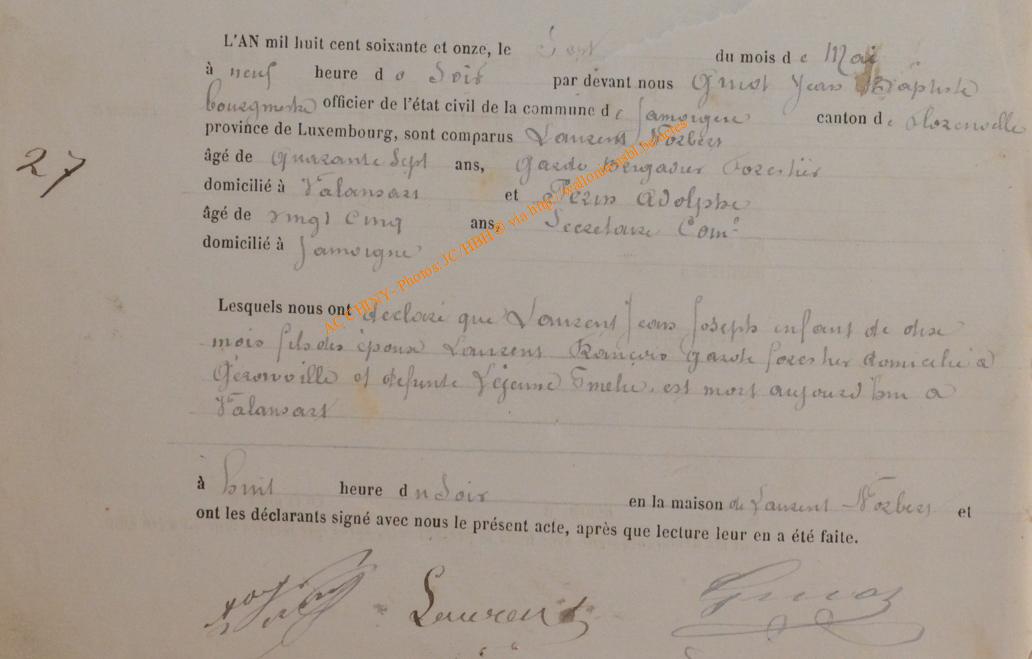 L'AN mil huit cent soixante et onze, le Sept du mois de Mai
à neuf heure du Soir par devant nous Gniot Jean Baptiste
bourgmestre officier de l'état civil de la commune de Jamoigne canton de Florenville
province de Luxembourg, sont comparus Laurent Norbert
27
âgé de Quarante Sept ans, Garde Brigadier Forestier
domicilié à Valansart et Perin Adolphe
âgé de vingt cinq ans, Secretaire Com.
domicilié à Jamoigne
AC CHINY - Photos: JC/HBH © via
Lesquels nous ont declaré que Laurent Jean Joseph enfant de dix
mois fils des époux Laurent François Garde forestier domicilié à
Gérouville et defunte Lejeune Emelie. est mort aujourd'hui a
Valansart
à huit heure du Soir en la maison de Laurent Norbert et
ont les déclarants signé avec nous le présent acte, après que lecture leur en a été faite.
Laurent